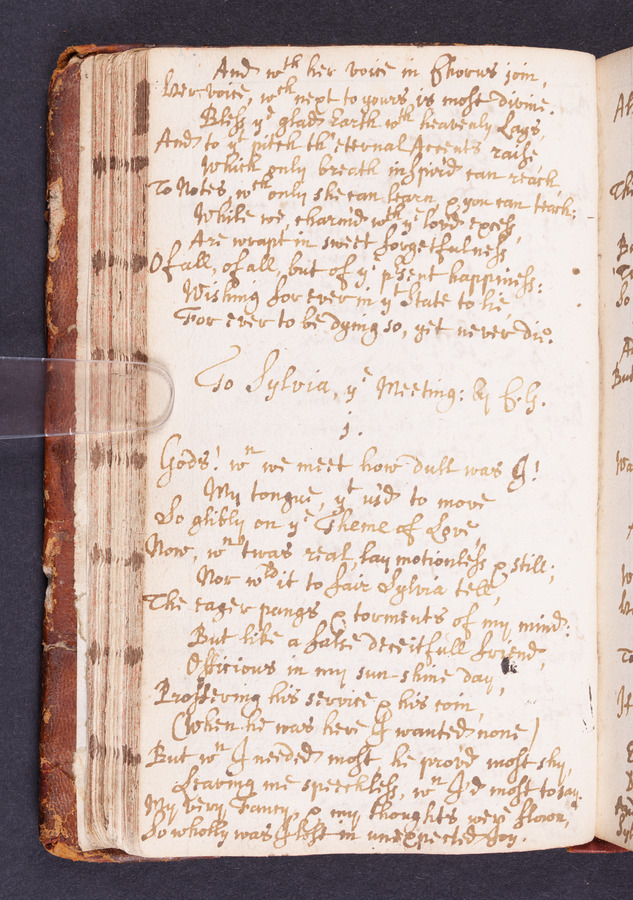 And wth her voice in Chorus join,
Her voice, wch next to yours is most divine.
Bless ye glad Earth wth heavenly Lays,
And to yt pitch th'eternal Accents raise
Which only breath inspir'd can reach,
To Notes wch only she can learn, & you can teach:
While we, charm'd wth ye lov'd excess,
Are wrapt in sweet forgetfulness
Of all, of all, but of ye prsent happiness:
Wishing for ever in yt State to lie,
For ever to be dying so, yet never die.
To Sylvia, ye Meeting: By
1.
Gods! wn we meet how dull was I!
My tongue, yt us'd to move
So glibly on ye Theme of Love,
Now, wn 'twas real, lay motionless & still;
Nor wd it to fair Sylvia tell,
The eager pangs & torments of my mind:
But like a false deceitfull friend,
Officious in my sun-shine day,
Proffering his service & his coin,
(When he was here I wanted none)
But wn I needed most he prov'd most shy,
Leaving me speechless, wn I'd most to say
My very Fancy, & my thoughts were flown,
So wholly was I lost in unexpected Joy.